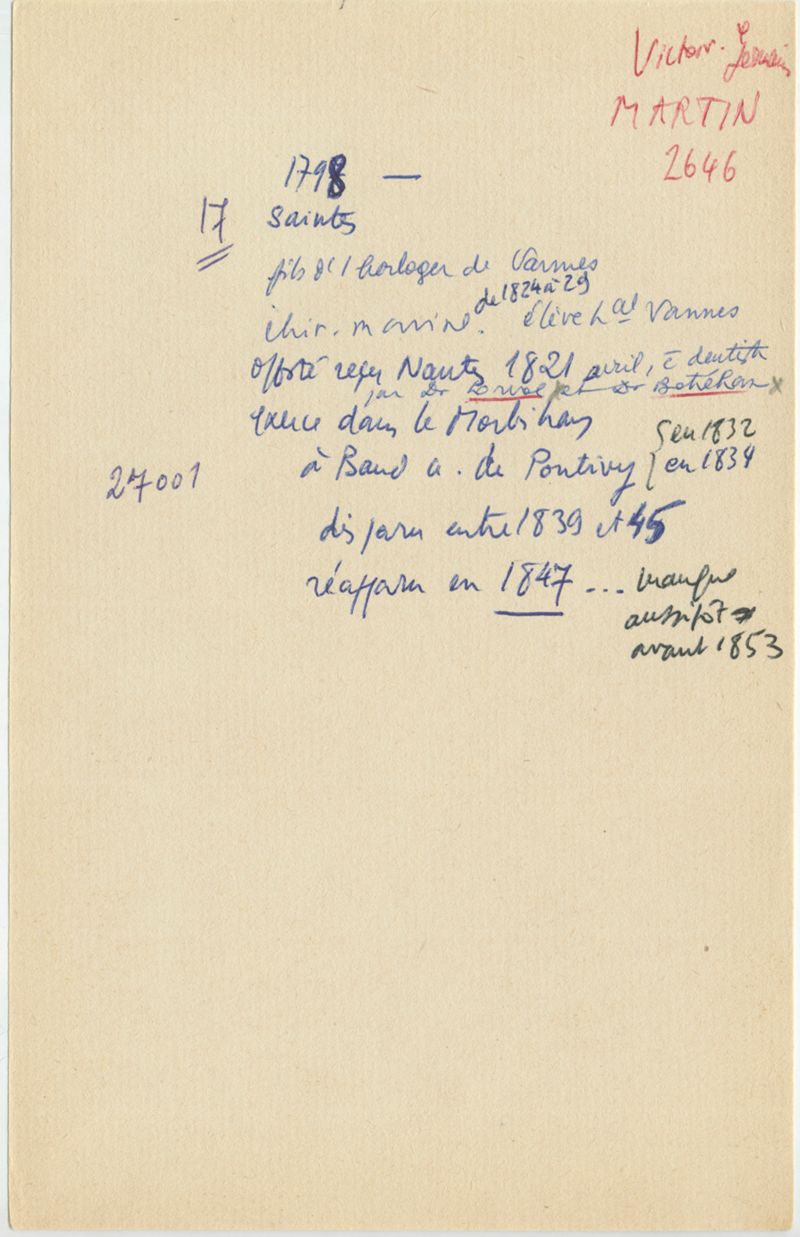 Victor. Germain
MARTIN
2646
1798 —
17 Saintes
fils d'1 horloger de Vannes
de 1824 à 29
chir. marine. élève hal Vannes
offsté reçu Nantes 1821 avril,
par Dr et Dr
exerce dans le Morbihan
à Baud a. de Pontivy { en 1832
en 1834
27001
disparu entre 1839 et 45
réapparu en 1847 ... manque
aussitôt
avant 1853